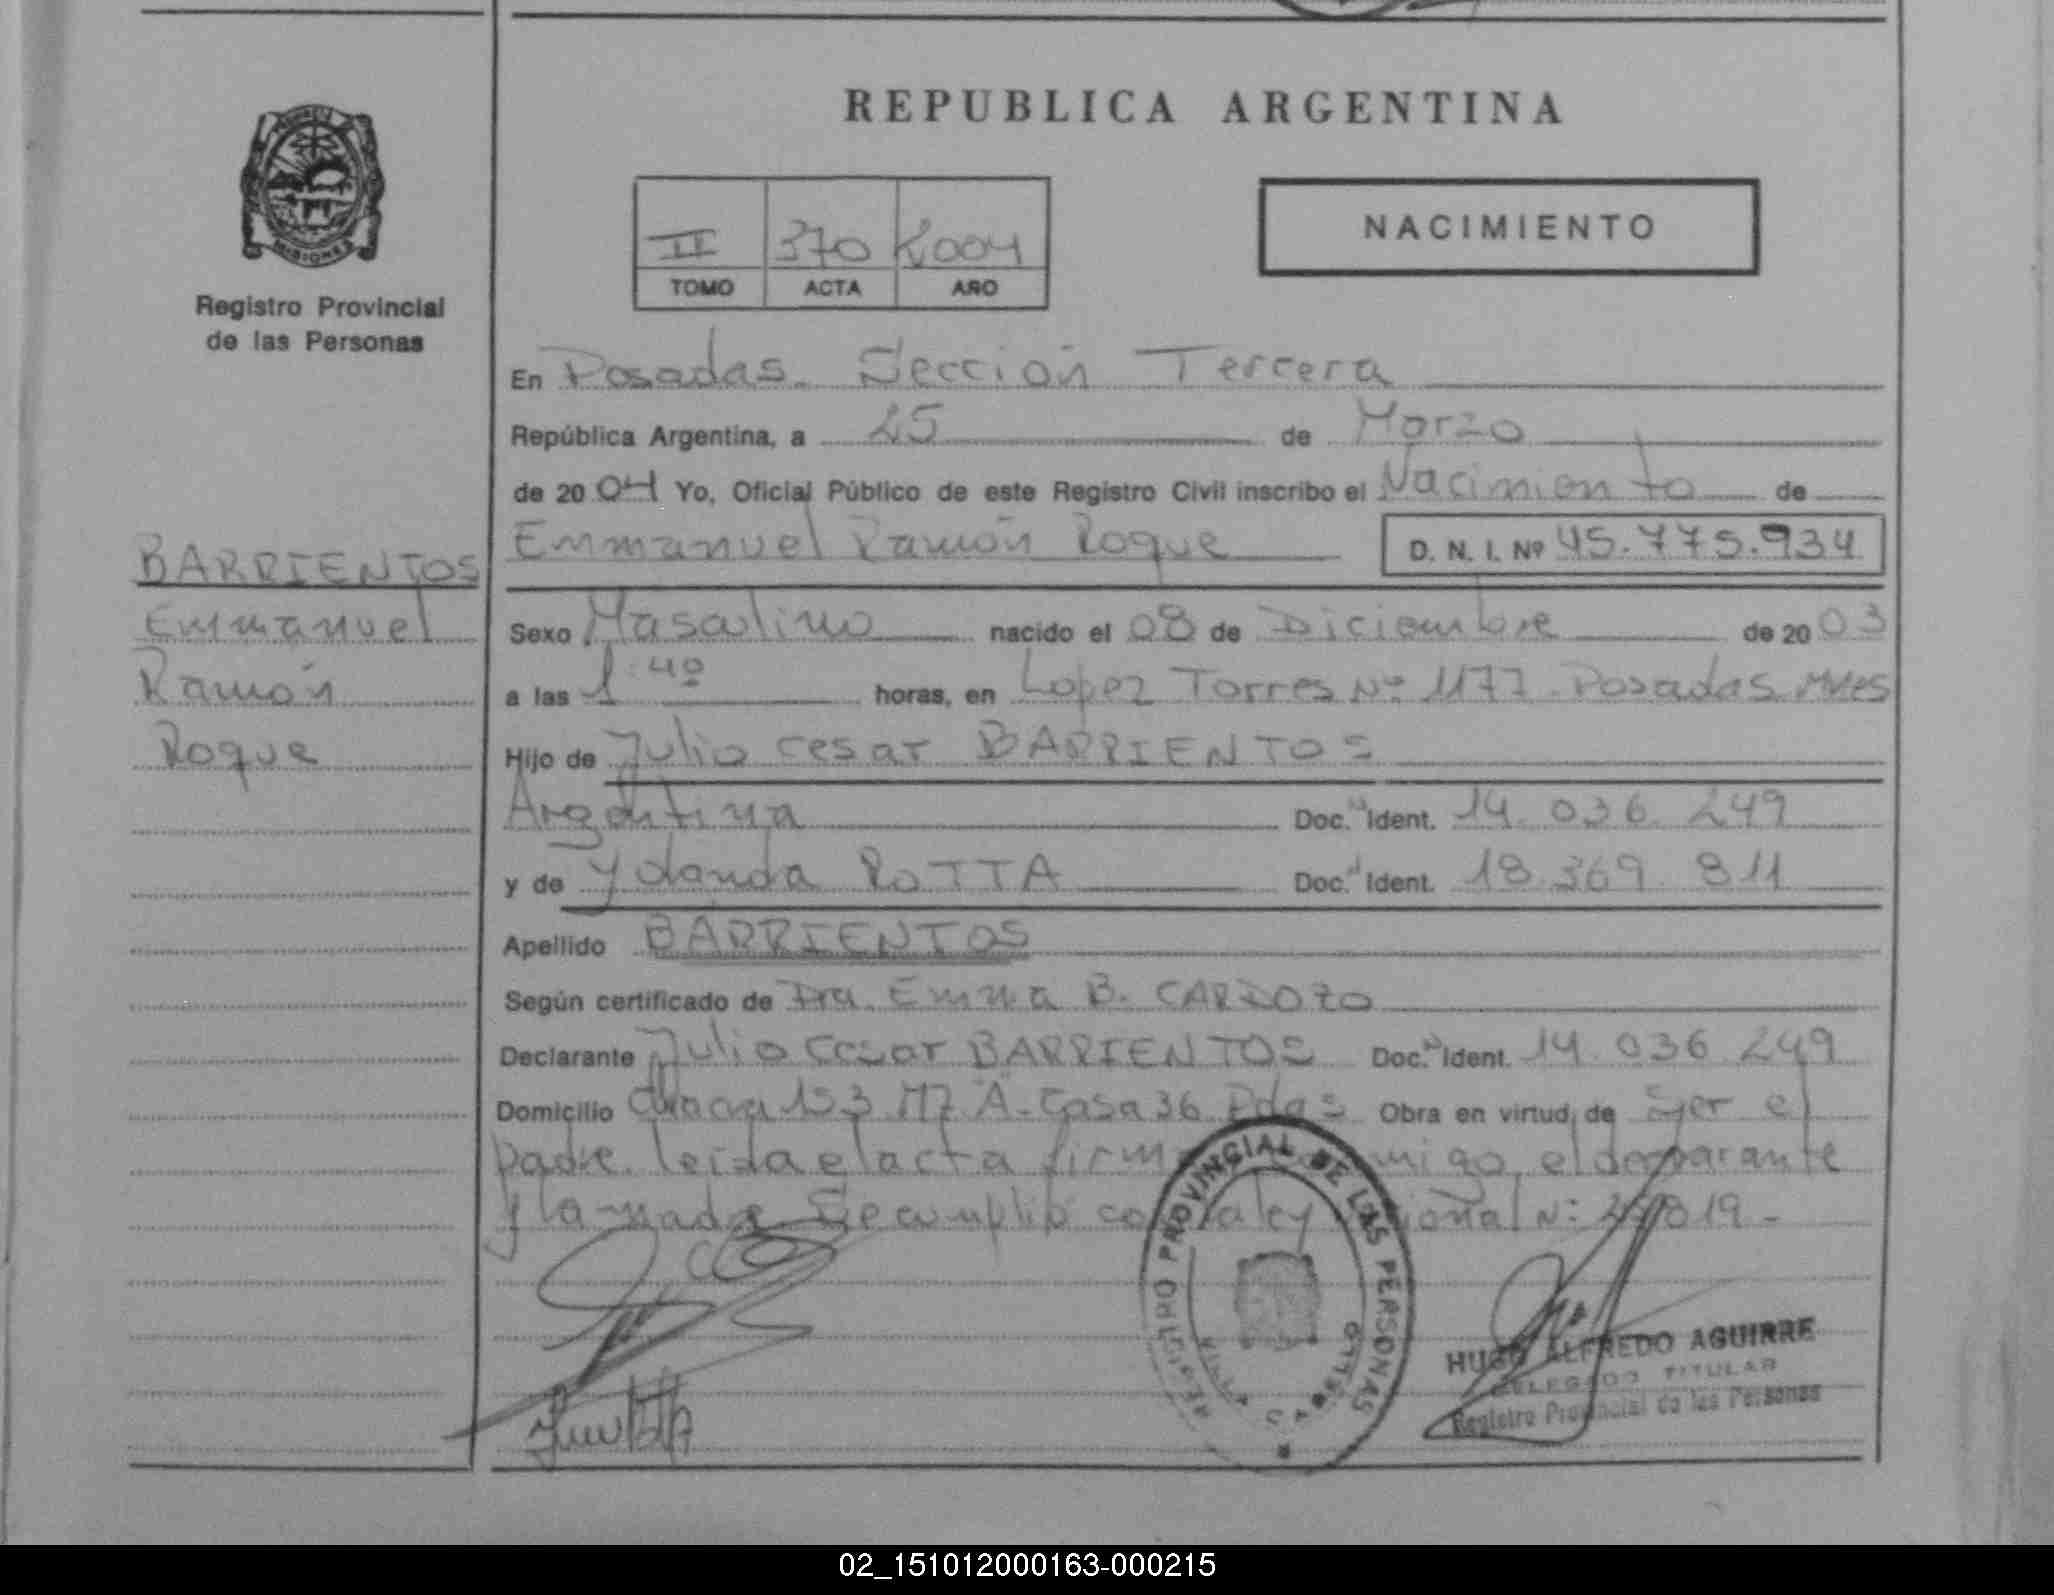 REPUBLICA ARGENTINA
MISIONES
Registro Provincial
de las Personas
II 370 2004
TOMO ACTA AÑO
NACIMIENTO
En Posadas. Sección Tercera
República Argentina, a 25 de Marzo
de 2004 Yo, Oficial Público de este Registro Civil inscribo el Nacimiento de
Emmanuel Ramón Roque D. N. I. Nº 45.775.934
BARRIENTOS
Emmanuel
Ramón
Roque
Sexo Masculino nacido el 08 de Diciembre de 2003
a las 1:40 horas, en Lopez Torres Nº 1177. Posadas Mnes
Hijo de Julio Cesar BARRIENTOS
Argentina Doc. Ident. 14.036.249
y de Yolanda ROTTA Doc. Ident. 18.369.811
Apellido BARRIENTOS
Según certificado de Dra. Emma B. CARDOZO
Declarante Julio Cesar BARRIENTOS Doc. Ident. 14.036.249
Domicilio Chacra 153 Mz A - Casa 36 Pdas Obra en virtud de Ser el
padre. leida el acta el
y la madre Se cumplió Nº
REGISTRO PROVINCIAL DE LAS PERSONAS
VILLA CABELLO
HUGO ALFREDO AGUIRRE
DELEGADO TITULAR
Registro Provincial de las Personas
02_151012000163-000215